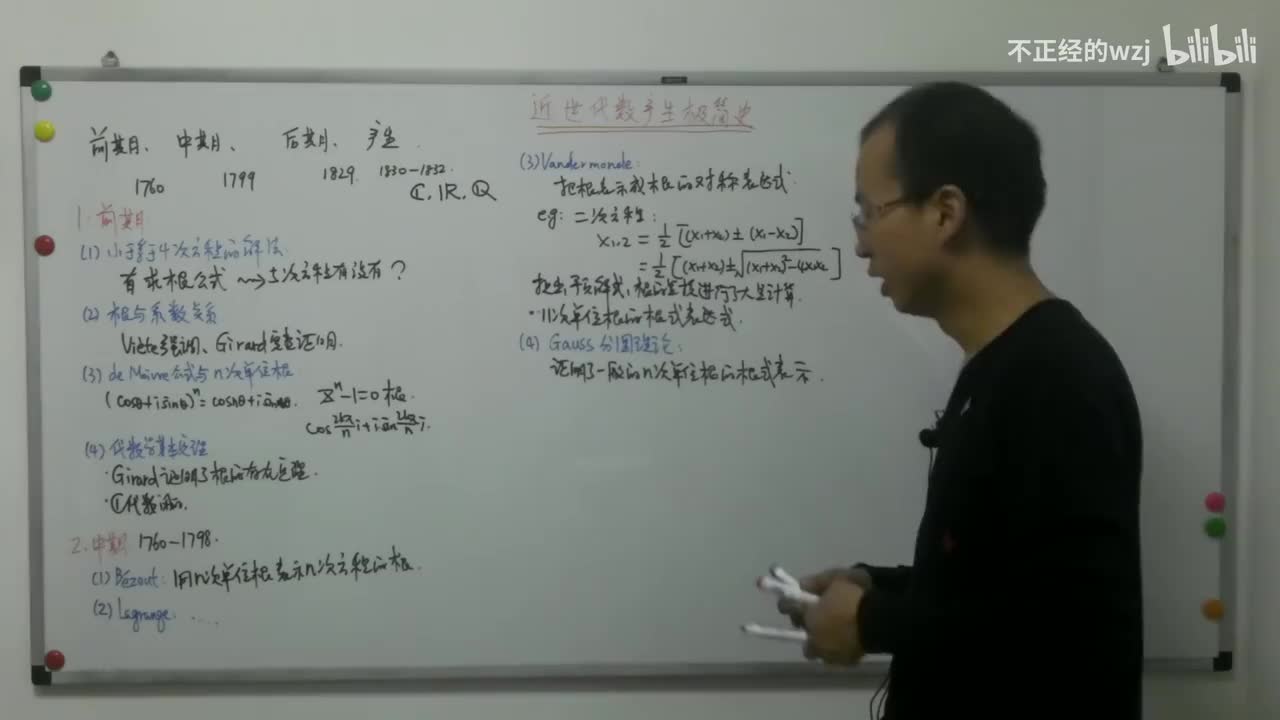 不正经的wzj bilibili
近世代数产生极简史
前期、中期、后期、产生.
1760 1799 1829. 1830-1832.
ℂ. ℝ. ℚ
1. 前期
(1) 小于等于4次方程的解法.
有求根公式 ⇝ 5次方程有没有?
(2) 根与系数关系
Viète强调、Girard完整证明.
(3) de Moivre公式与n次单位根
(cosθ+isinθ)ⁿ=cosnθ+isinnθ. xⁿ-1=0根.
(4) 代数学基本定理
·Girard证明了根的存在定理.
·ℂ代数闭的.
2. 中期 1760-1798.
(1) Bézout: 用n次单位根表示n次方程的根.
(2) Lagrange: ....
(3) Vandermonde:
把根表示成根的对称表达式.
eg: 二次方程:
x₁,₂ = ½[(x₁+x₂)±(x₁-x₂)]
= ½[(x₁+x₂)±√(x₁+x₂)²-4x₁x₂]
·11次单位根的根式表达式.
(4) Gauss 分圆理论:
证明了一般的n次单位根的根式表示.